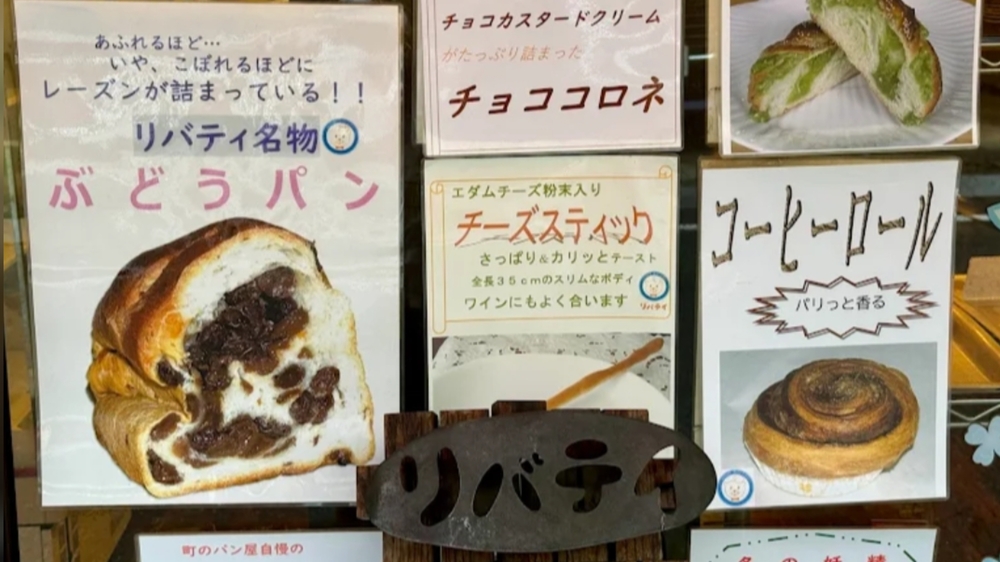 あふれるほど…
いや、こぼれるほどに
レーズンが詰まっている！！
リバティ名物
ぶどうパン
チョコカスタードクリーム
がたっぷり詰まった
チョココロネ
エダムチーズ粉末入り
チーズスティック
さっぱり&カリッとテースト
全長35cmのスリムなボディ
ワインにもよく合います
リバティ
コーヒーロール
パリっと香る
リバティ
町のパン屋自慢の
の妖精